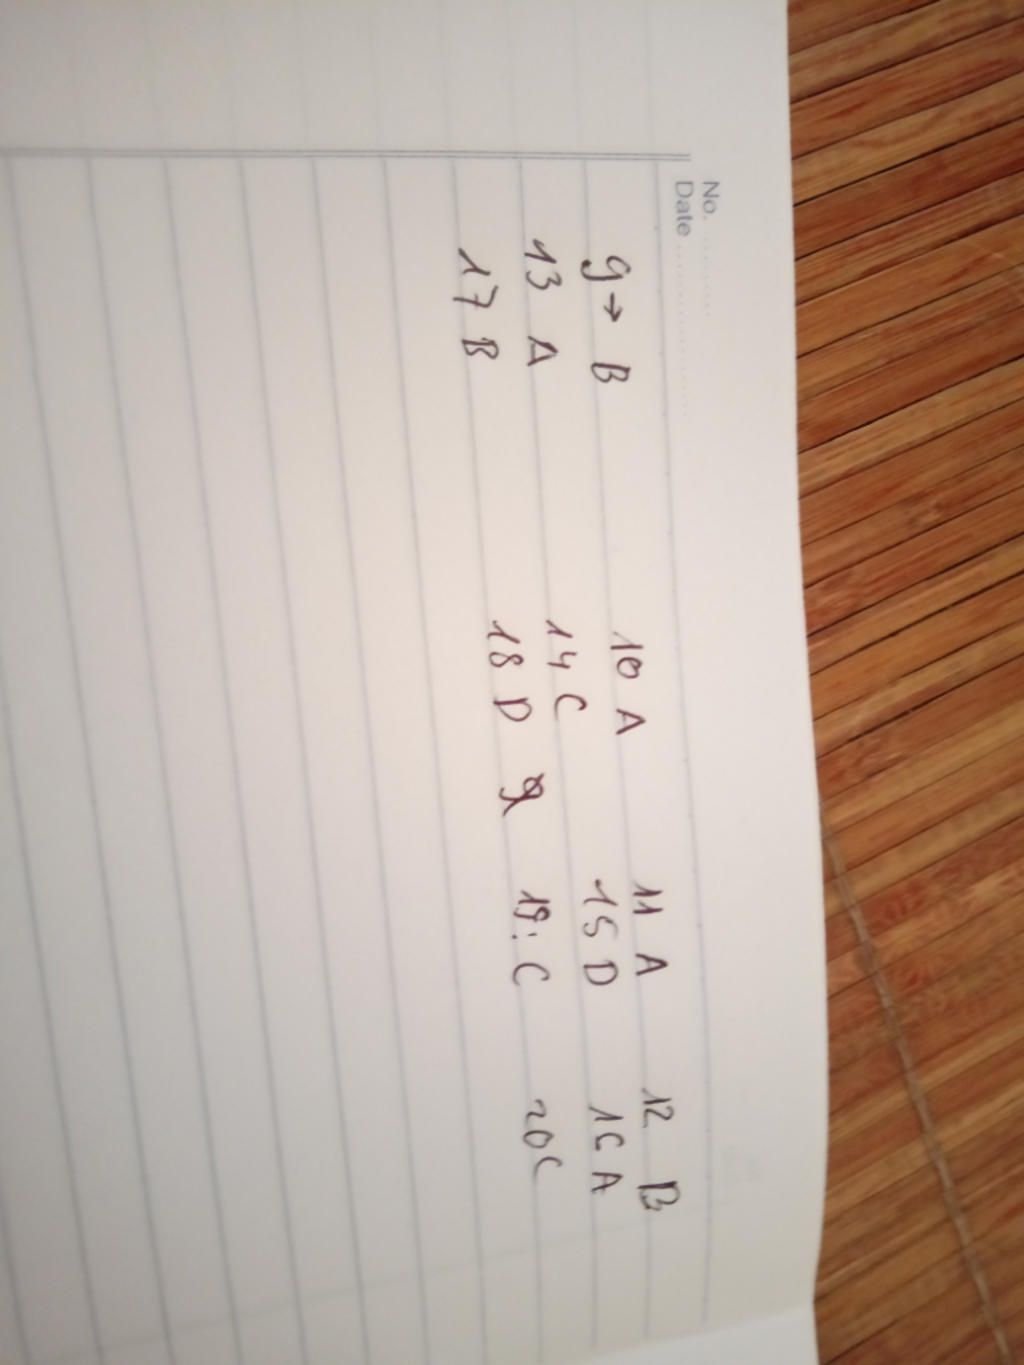 No. ............
Date ......................
9→ B 10 A 11 A 12 B
13 A 14 C 15 D 16 A
17 B 18 D 19: C 20C